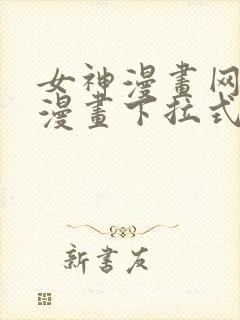 女神漫畫网
漫畫下拉式
新書友